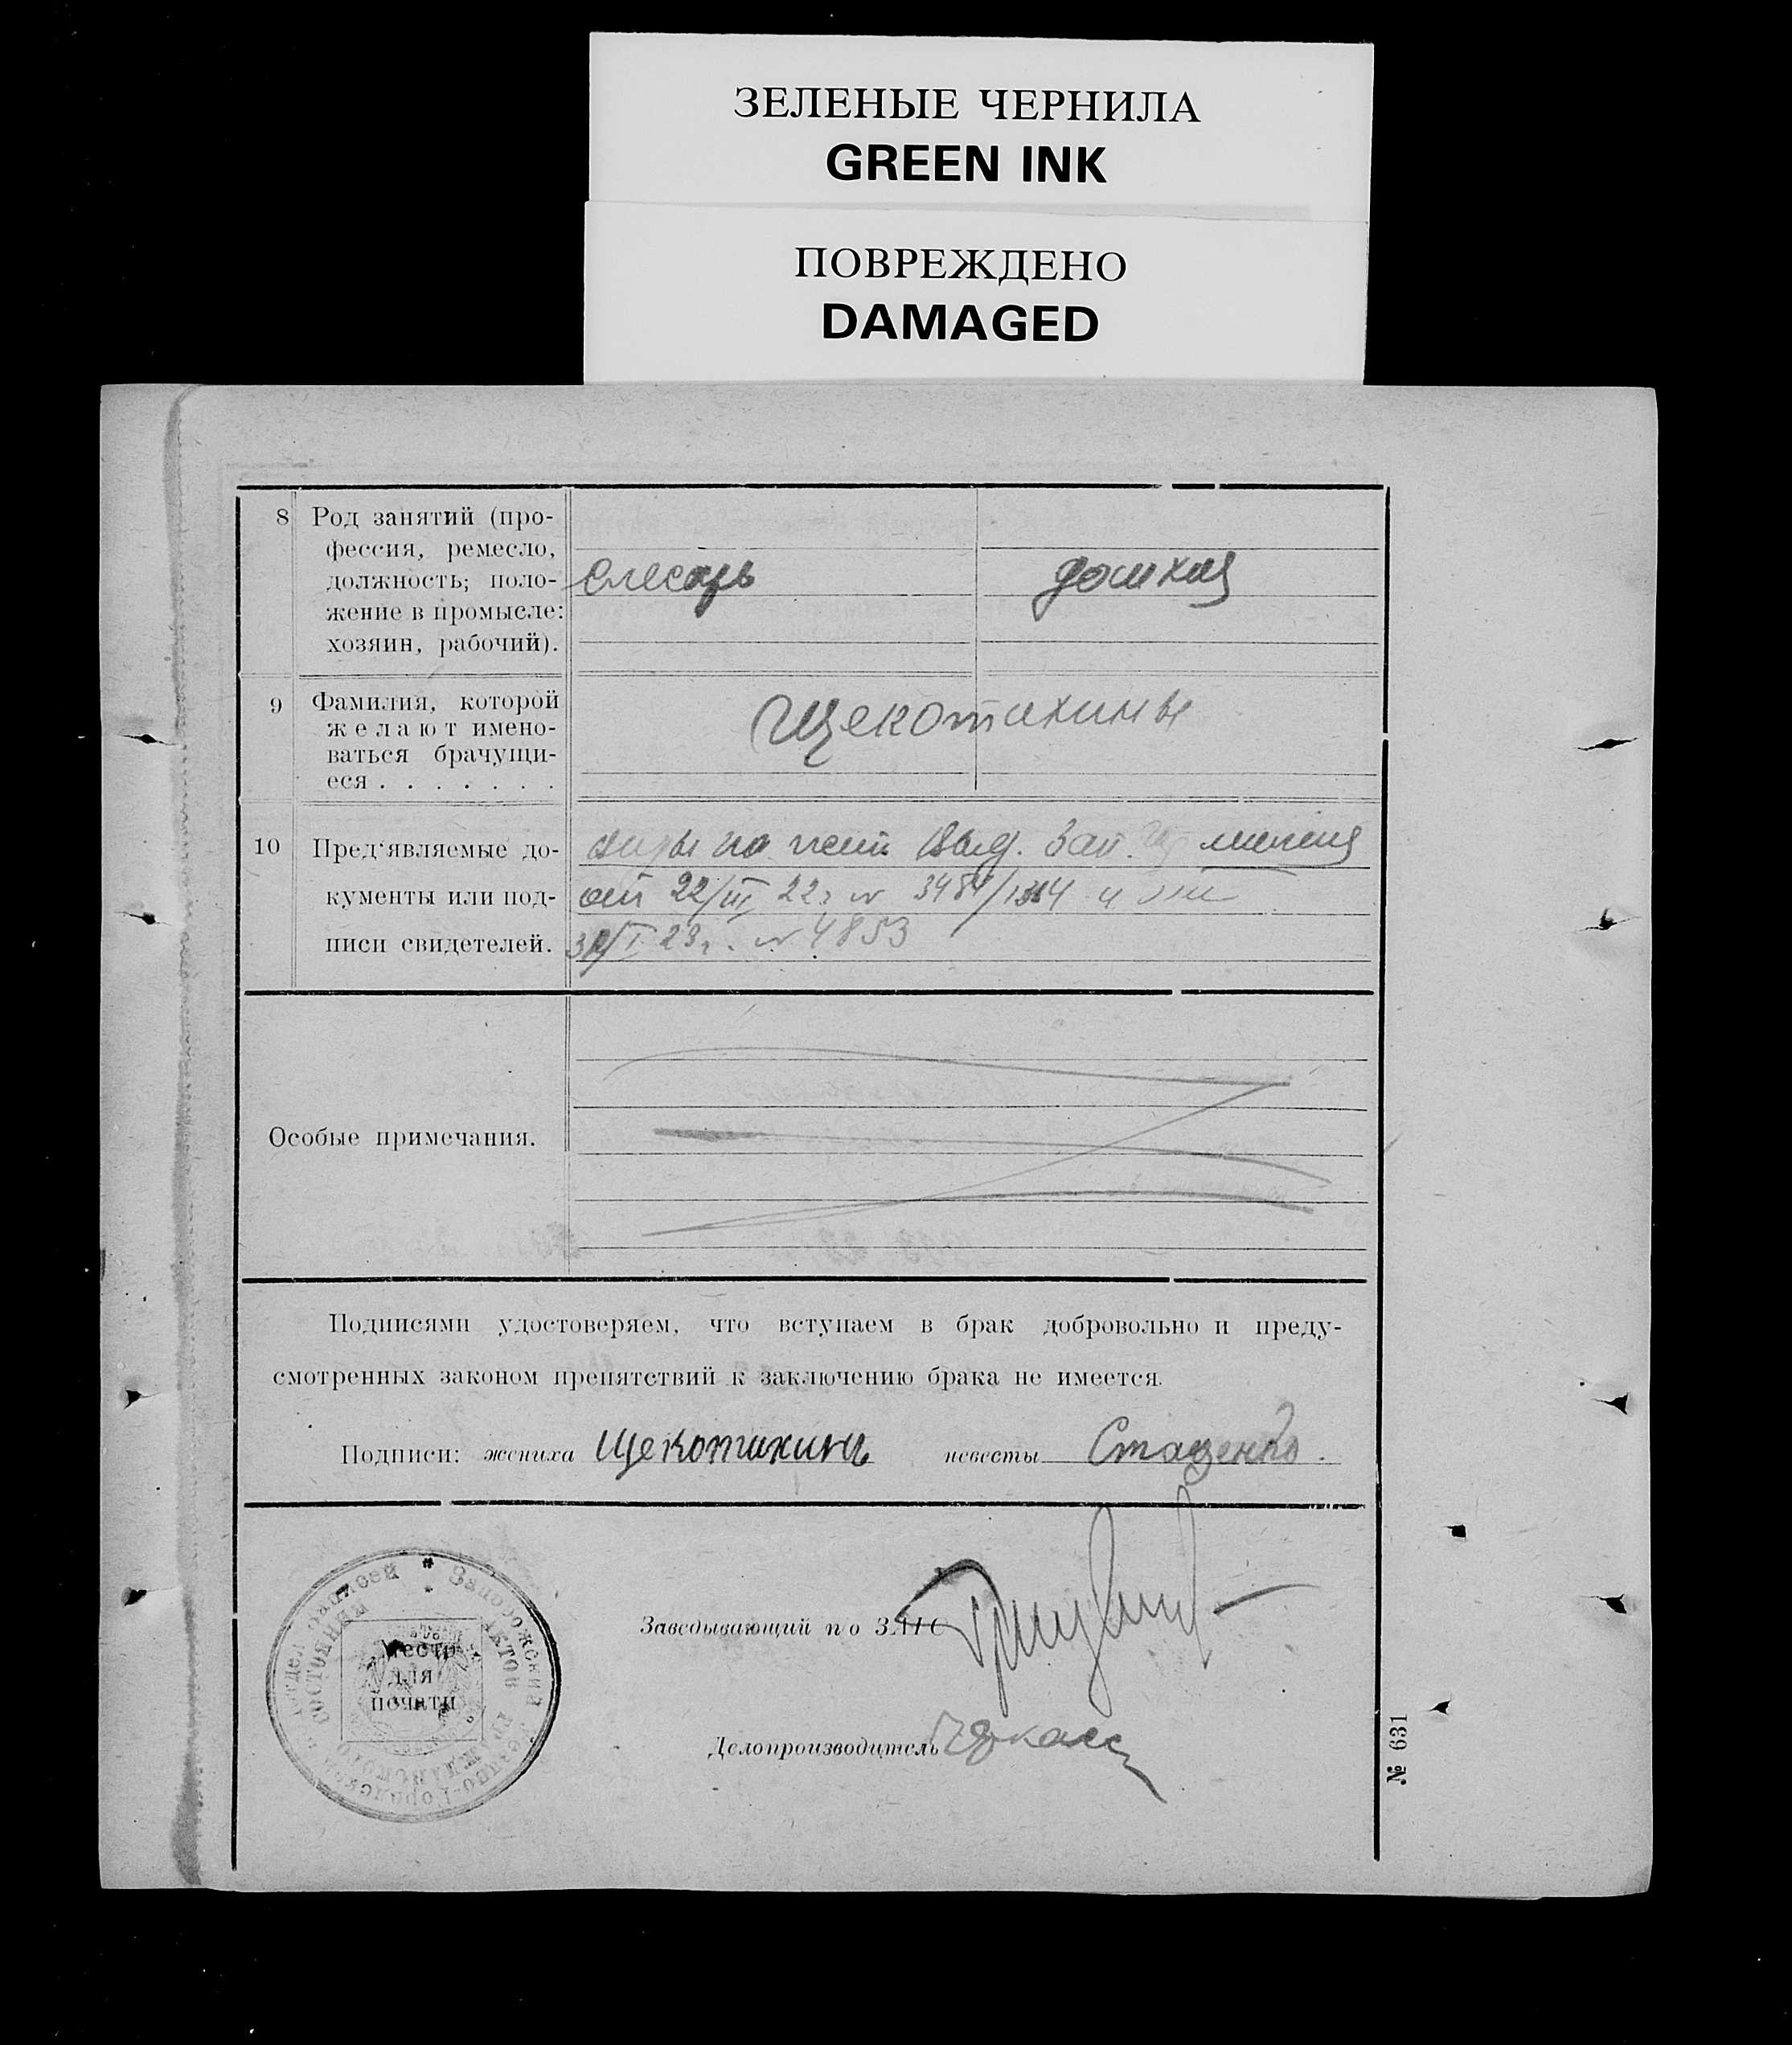 ЗЕЛЕНЫЕ ЧЕРНИЛА
GREEN INK
ПОВРЕЖДЕНО
DAMAGED
8 Род занятий (про-
фессия, ремесло,
должность; поло-
жение в промысле:
хозяин, рабочий).
слесарь
9 Фамилия, которой
желают имено-
ваться брачущи-
еся . . . . . . .
Щекотихины
10 Пред'являемые до-
кументы или под-
писи свидетелей.
виды на жит. Выд. Зап.
от 22/III 22г № и от
I 23г. № 4853
Особые примечания.
Подписями удостоверяем, что вступаем в брак добровольно и преду-
смотренных законом препятствий к заключению брака не имеется.
Подписи: жениха Щекотихинъ невесты Стаценко.
Заведывающий по ЗАГС
Делопроизводитель
Место
для
печати
№ 631